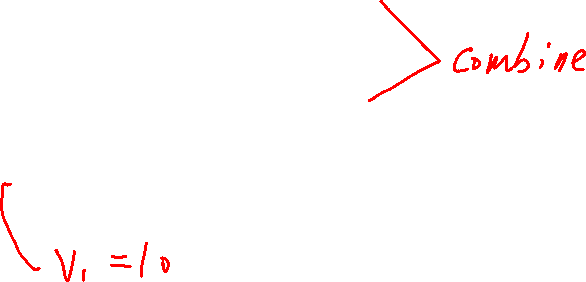 combine
V₁ = 10